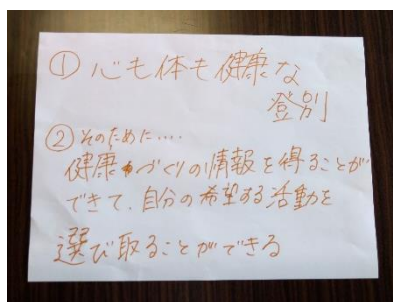 ①心も体も健康な
登別
②そのために‥‥
健康づくりの情報を得ることが
できて、自分の希望する活動を
選び取ることができる